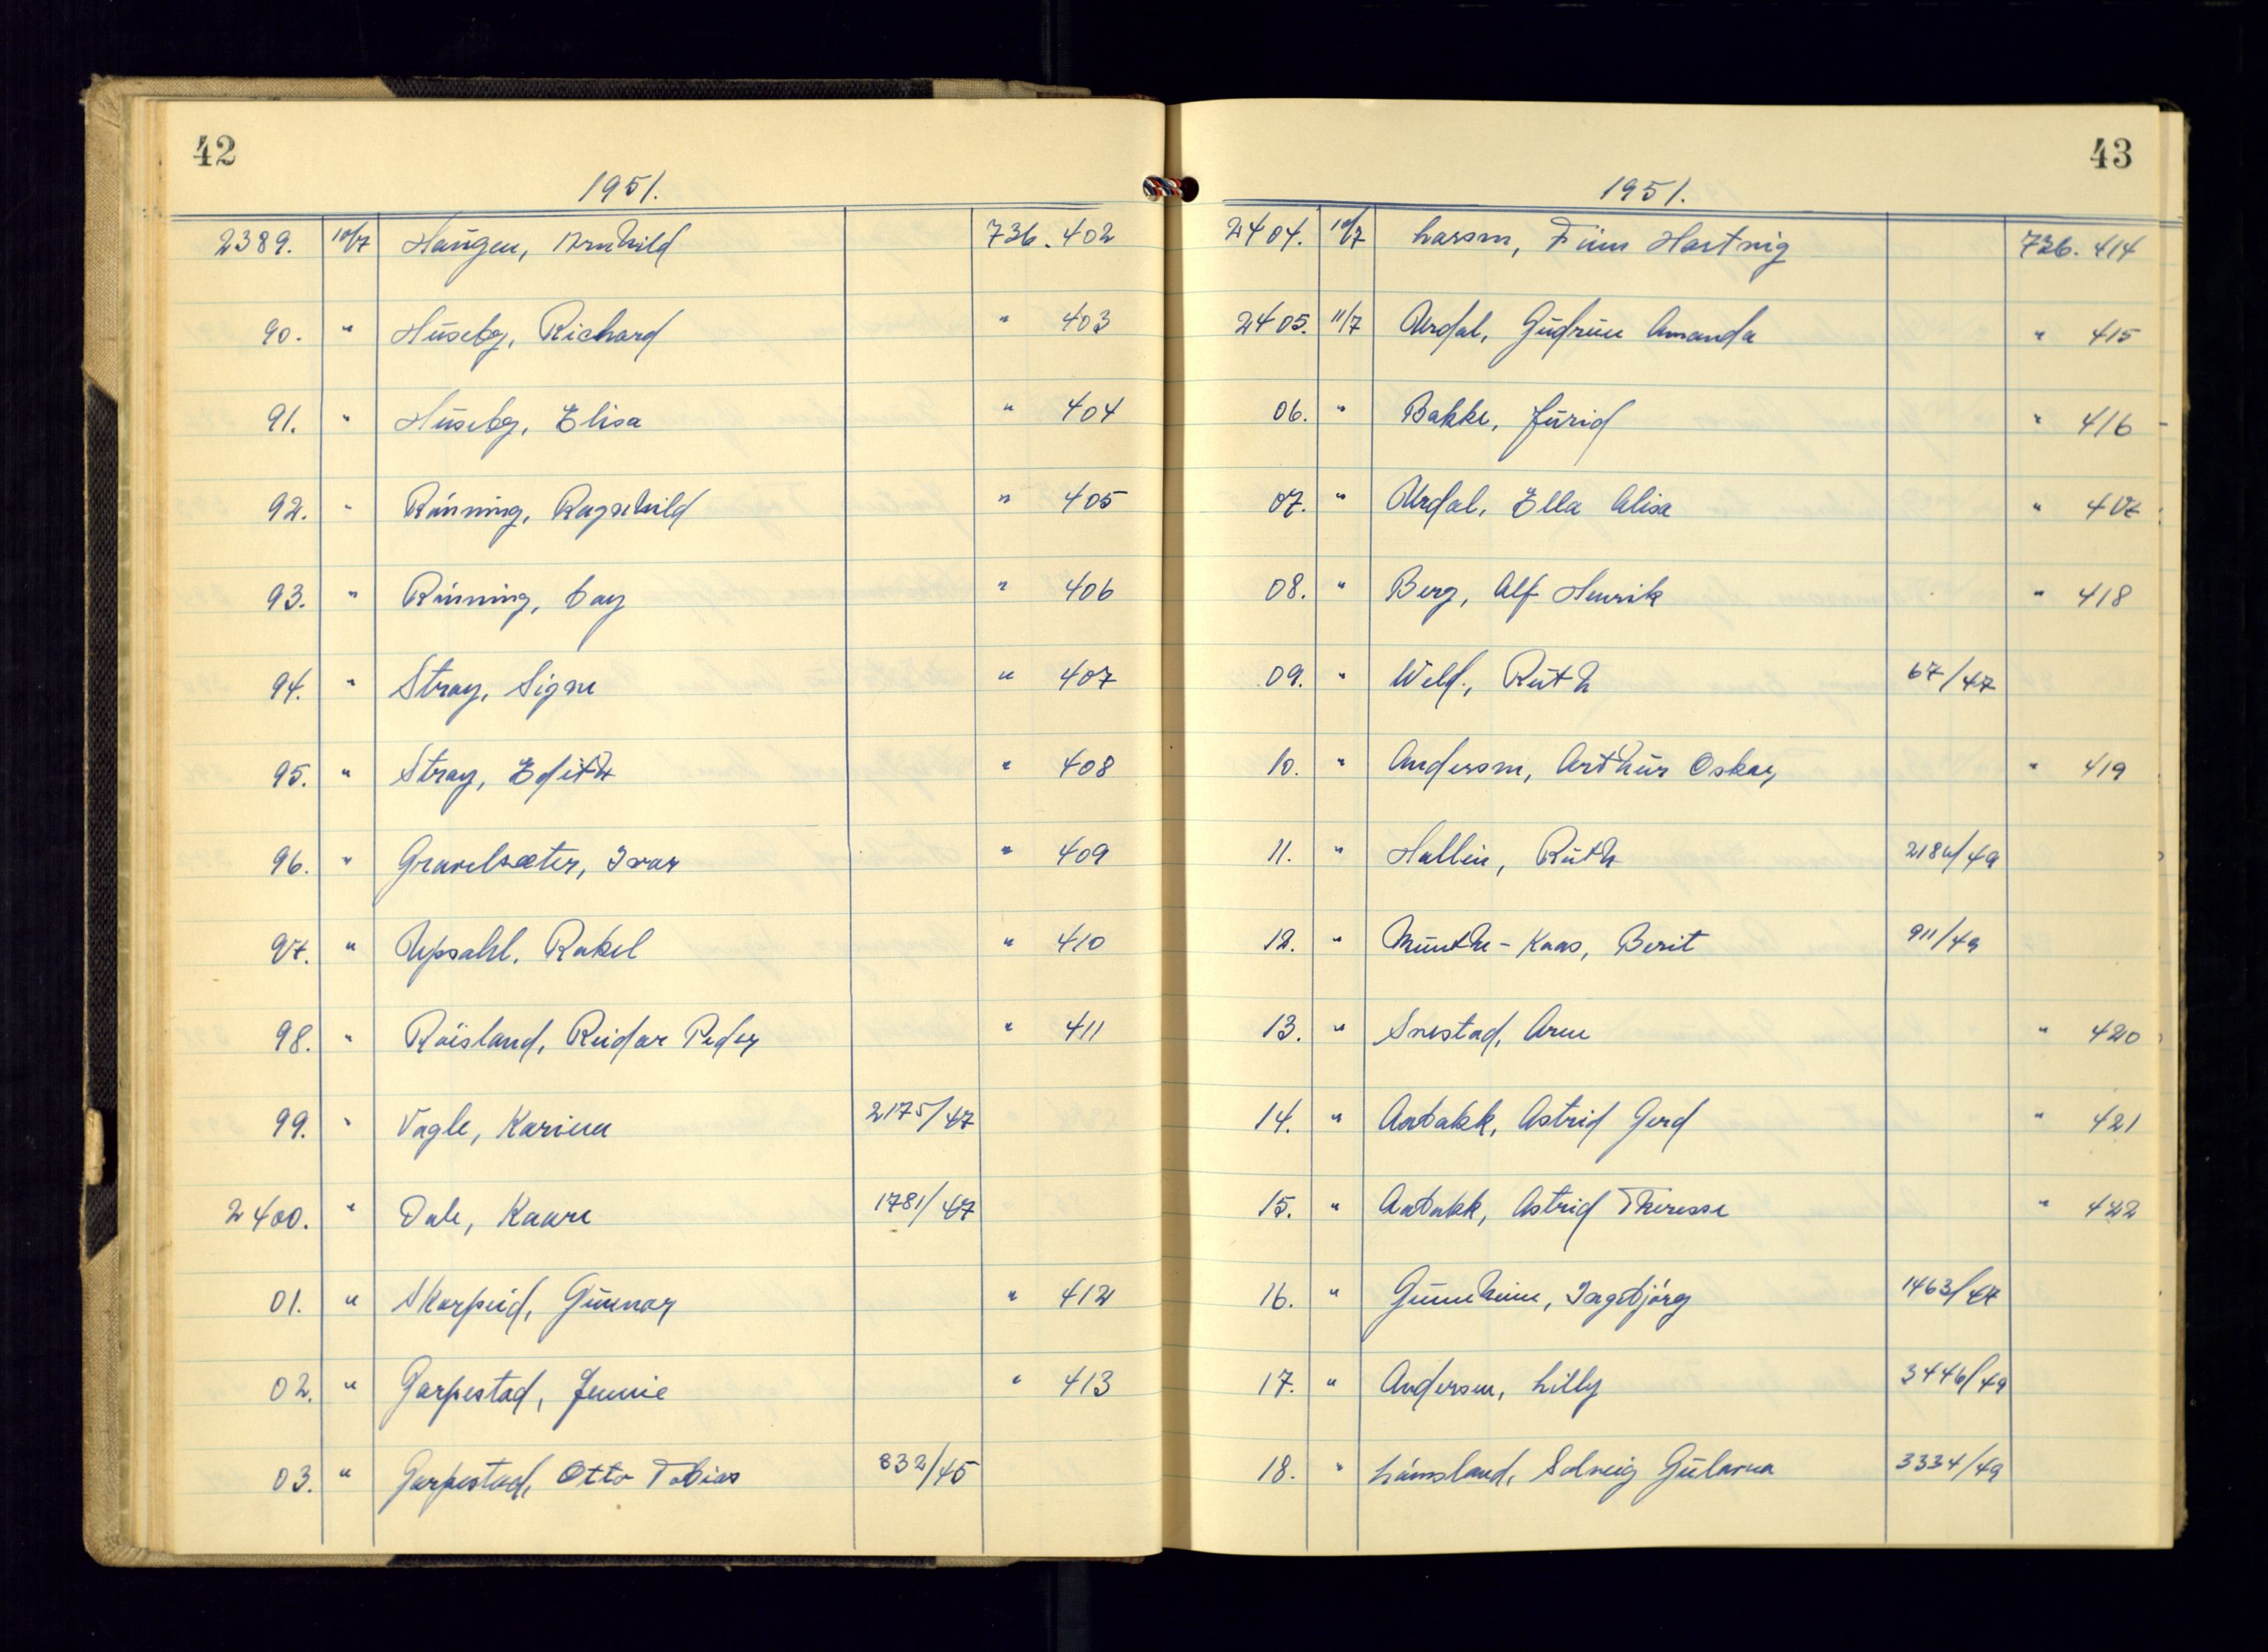 42
1951.
2389. 10/7 Haugen, Arnhild 736. 402
90. " Huseby, Richard " 403
91. " Huseby, Elisa " 404
92. " Rönning, Ragnhild " 405
93. " Rönning, Dag " 406
94. " Stray, Signe " 407
95. " Stray, Edith " 408
96. " Gravelsæter, Ivar " 409
97. " Upsahl, Rakel " 410
98. " Röisland, Reidar Peder " 411
99. " Vagle, Karina 2175/47
2400. " Dale, Kaare 1781/47
01. " Skarpeid, Gunnar " 412
02. " Garpestad, Jennie " 413
03. " Garpestad, Otto Tobias 832/45
43
1951.
2404. 10/7 Larsen, Finn Hartvig 736. 414
2405. 11/7 Urdal, Gudrun Amanda " 415
06. " Bakke, Jurid " 416
07. " Urdal, Ella Alisa " 417
08. " Berg, Alf Henrik " 418
09. " Weld, Ruth 67/47
10. " Andersen, Arthur Oskar " 419
11. " Hallin, Ruth /49
12. " Munthe-Kaas, Berit 911/49
13. " Snestad, Arne " 420
14. " Aabakk, Astrid Gerd " 421
15. " Aabakk, Astrid Therese " 422
16. " Gunnheim, Ingebjörg 1463/47
17. " Andersen, Lilly 3446/49
18. " Lömsland, Solveig Gularna 3334/49